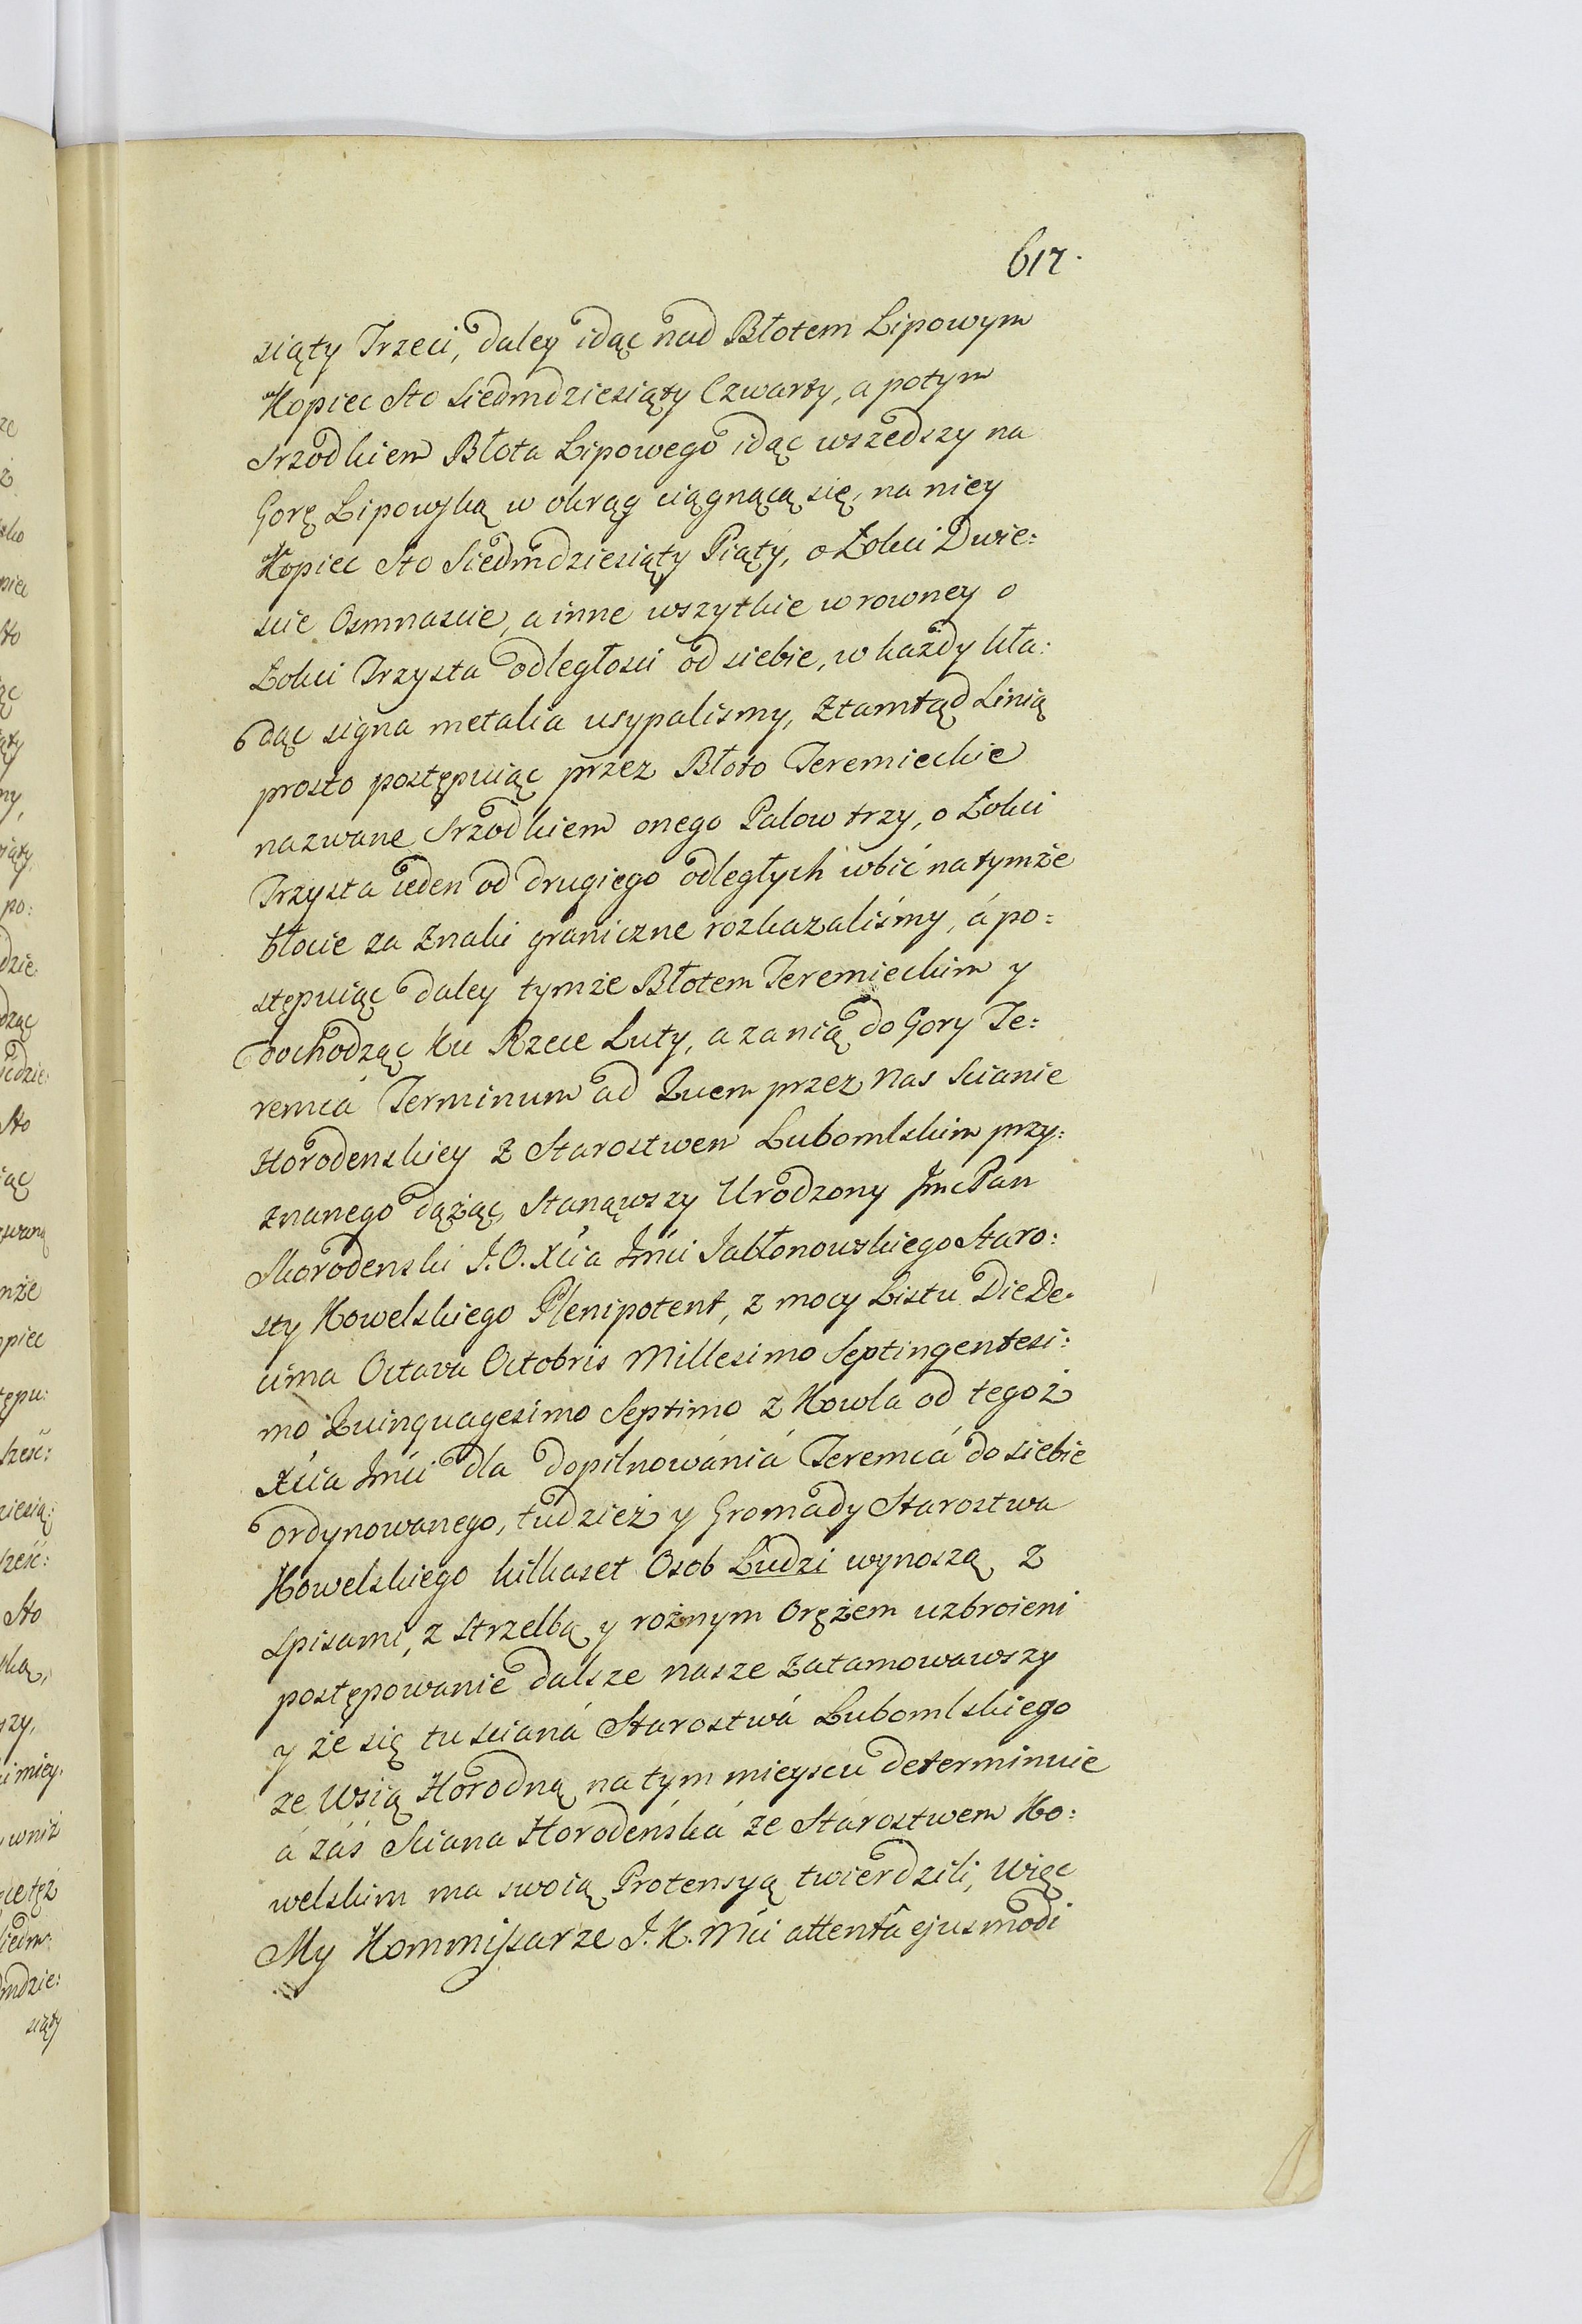 617.
siąty Trzeci, daley idąc nad Błotem Lipowym
Kopiec Sto Siedmdziesiąty Czwarty, a potym
Srzodkiem Błota Lipowego idąc wszedszy na
Gorę Lipowską w okrąg ciągnącą się, na niey
Kopiec Sto Siedmdziesiąty Piąty, o Łokci Dwie=
scie Osmnascie, a inne wszytkie w rowney o
Łokci Trzysta odległosci od siebie, w każdy kła=
dąc signa metalia usypalismy, Ztamtąd Linią
prosto postępuiąc przez Błoto Teremieckie
nazwane Srzodkiem onego Palow trzy, o Łokci
Trzysta ieden od drugiego odległych wbić na tymże
błocie za Znaki graniczne rozkazaliśmy, á po=
stępuiąc daley tymże Błotem Teremieckim y
dochodząc ku Rzece Luty, a za nią do Gory Te=
remca Terminum ad Quem przez Nas Scianie
Horodenskiey z Starostwem Lubomlskim przy=
znanego dążąc, Stanąwszy Urodzony Jmc Pan
Skorodenski J. O. Xcia Jmci Jabłonowskiego Staro=
sty Kowelskiego Plenipotent, z mocy Listu Die De=
cima Octava Octobris Millesimo Septingentesi=
mo Quinquagesimo Septimo z Kowla od tegoż
Xcia Jmci dla dopilnowániá Teremcá do siebie
ordynowanego, tudzież y Gromady Starostwa
Kowelskiego kilkaset Osob Ludzi wynoszą z
spisami, z strzelbą y rożnym Orężem uzbroieni
postępowanie dalsze nasze zatamowawszy
y że się tu scianá Starostwá Lubomlskiego
ze Wsią Horodną na tym mieyscu determinuie
á záś Sciana Horodeńská ze Stárostwem Ko=
welskim ma swoią Protensyą twierdzili, Więc
My Kommissarze J. K. Mci attentâ ejusmodi